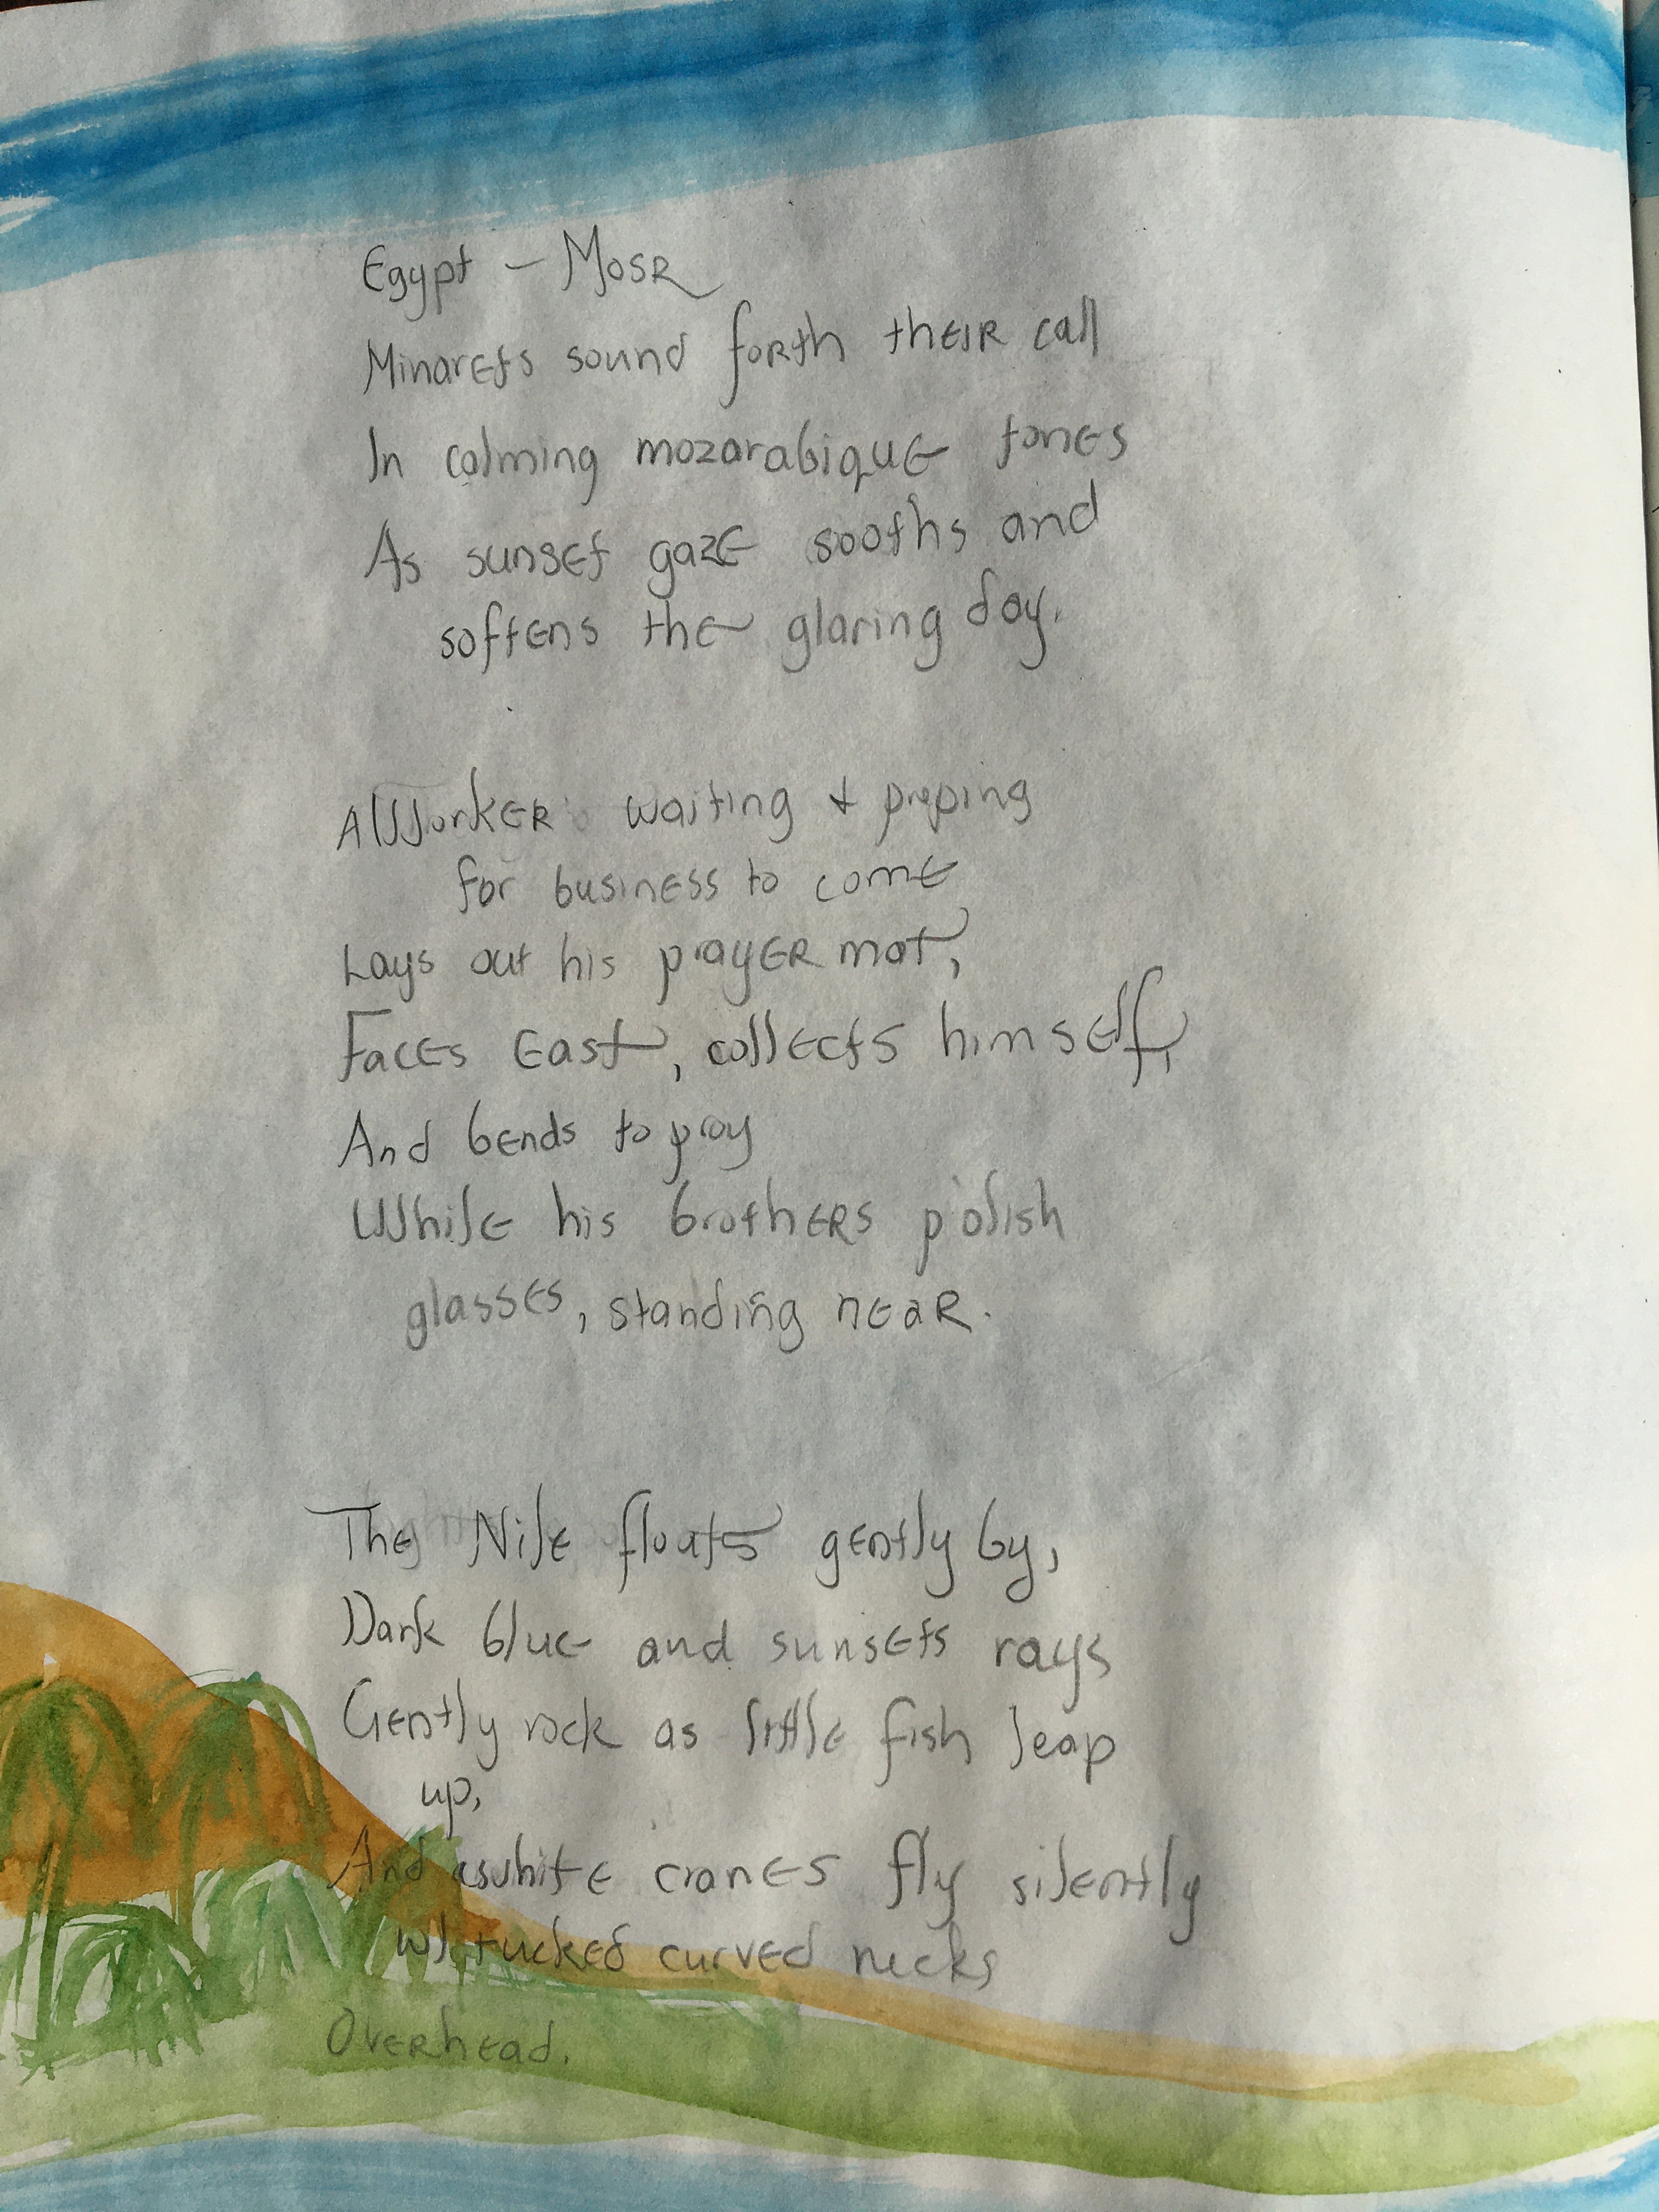 Egypt - Mosr
Minarets sound forth their call
In calming mozarabique tones
As sunset gaze sooths and
softens the glaring day.
A Worker waiting + preping
for business to come
Lays out his prayer mat,
Faces East, collects himself,
And bends to pray
While his brothers polish
glasses, standing near.
The Nile floats gently by,
Dark blue and sunsets rays
Gently rock as little fish leap
up,
And white cranes fly silently
w/ tucked curved necks
Overhead.